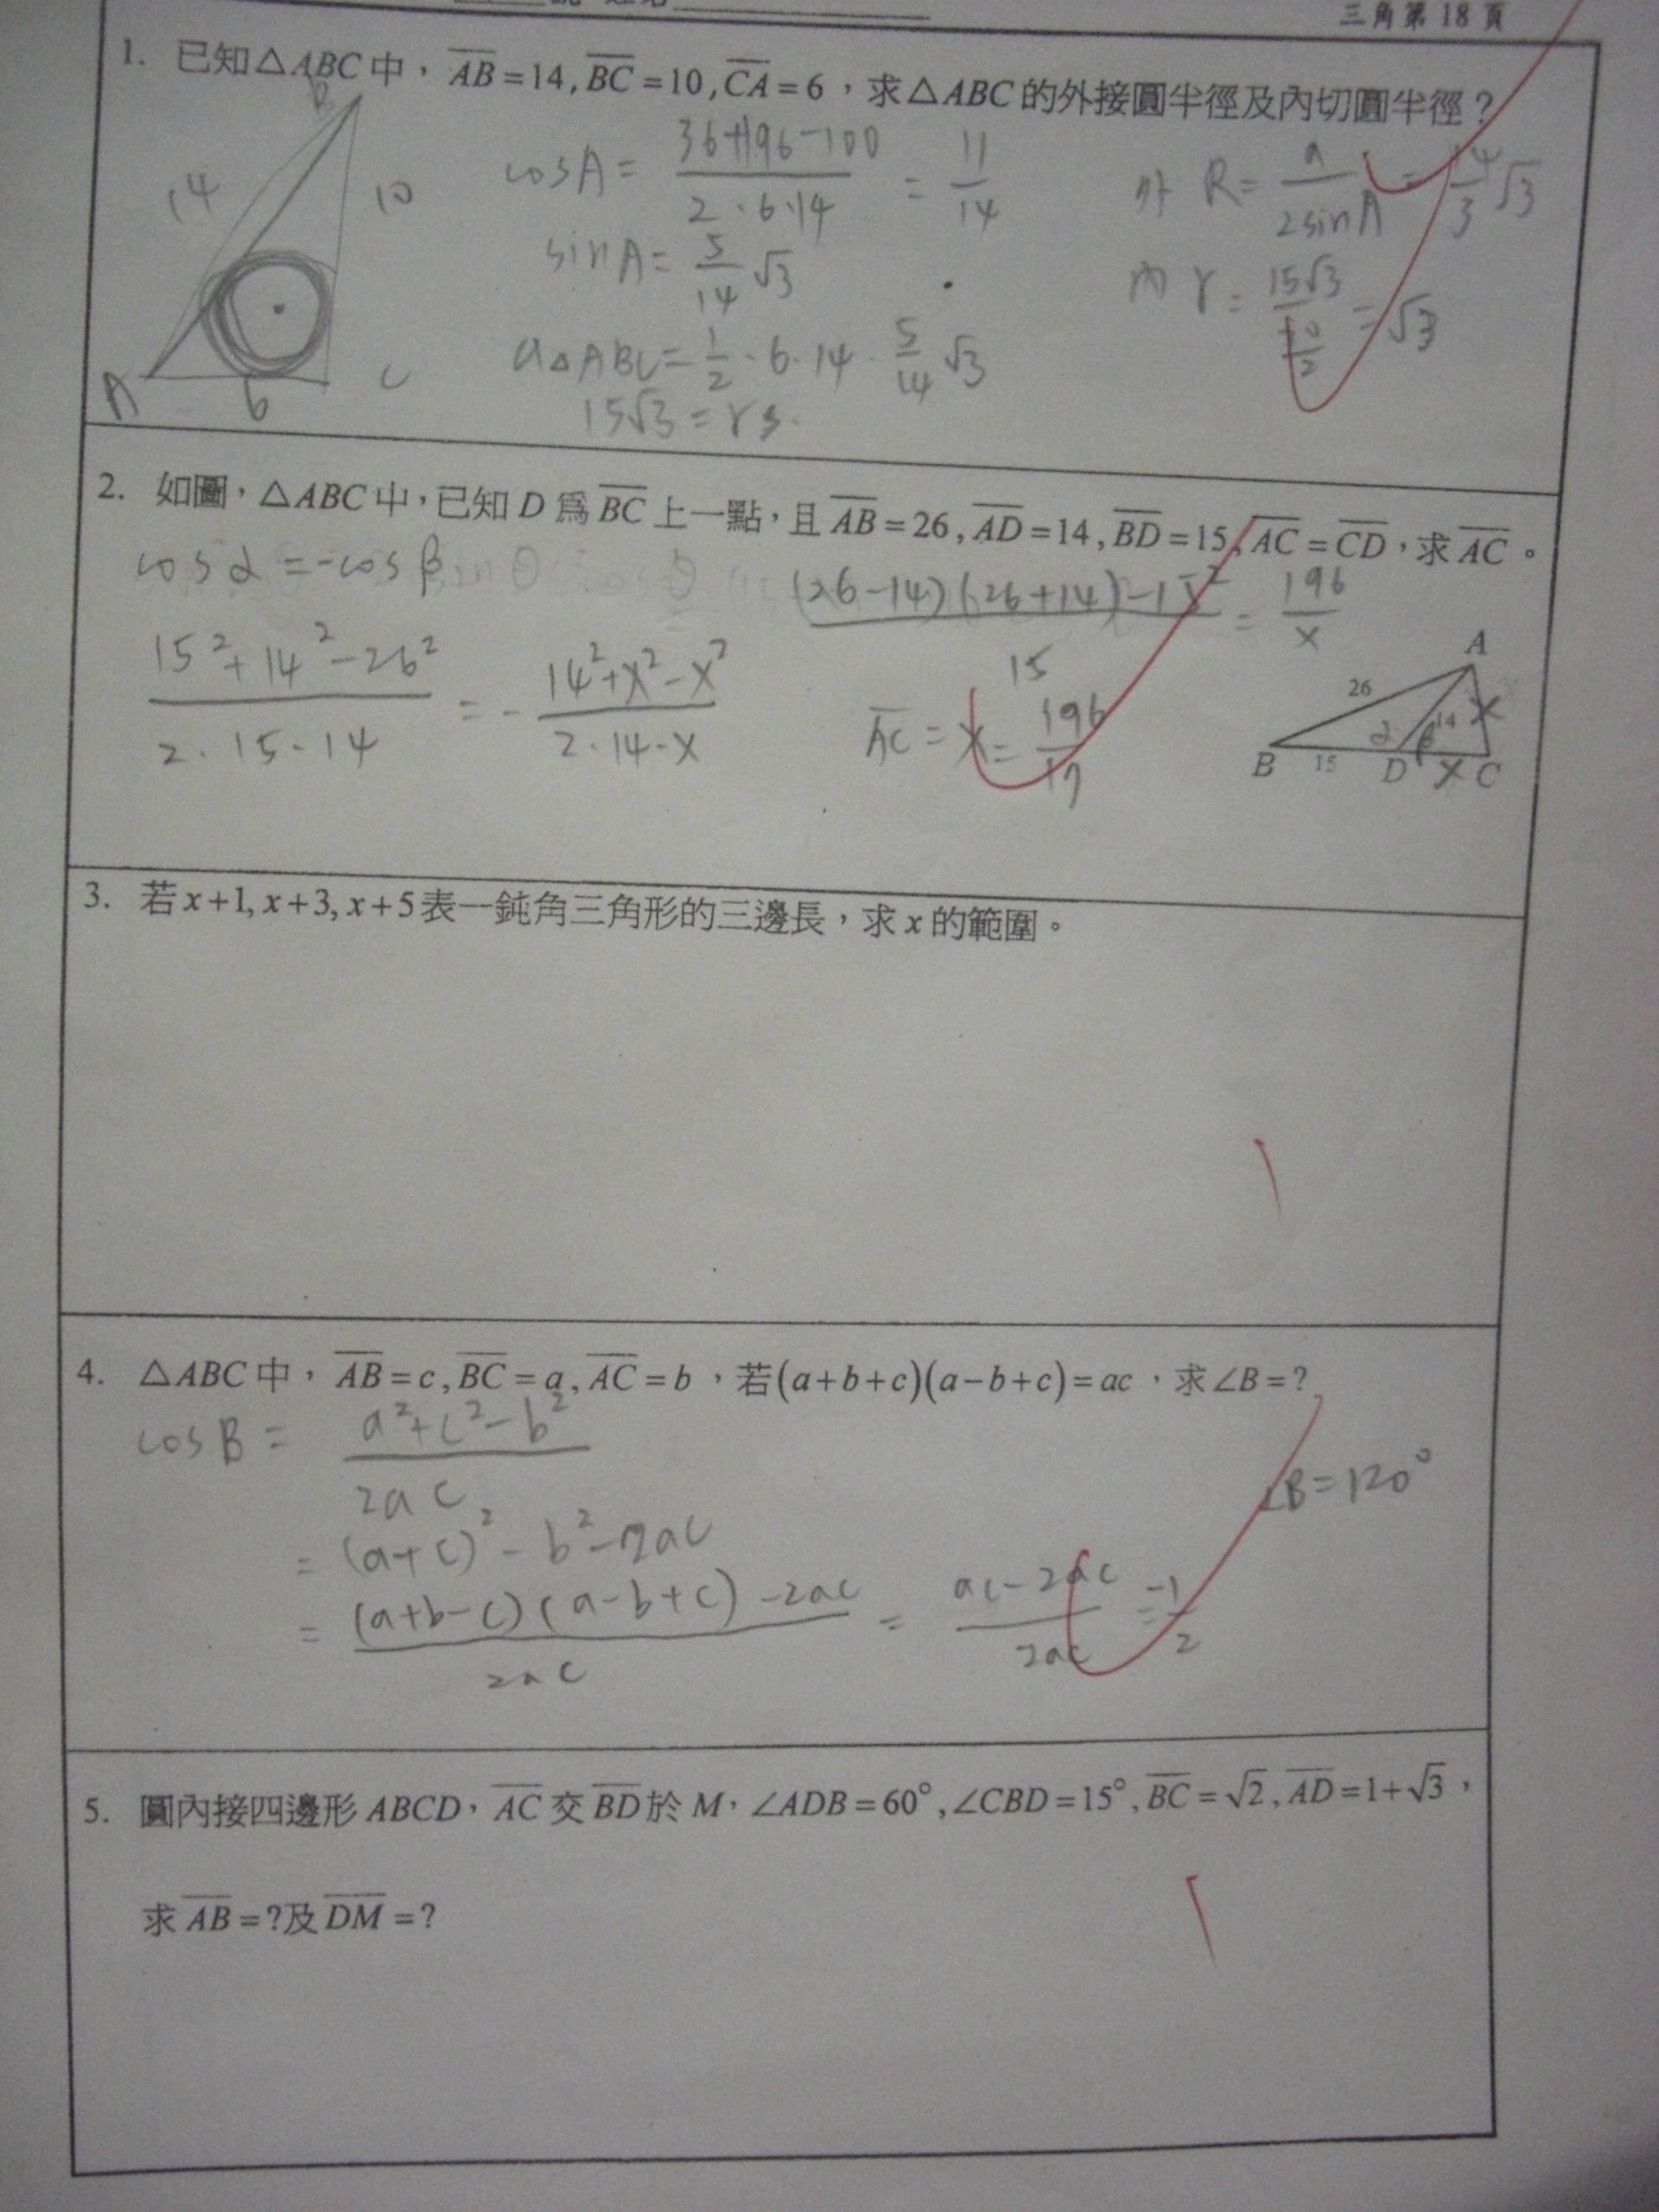 三角第 18 頁
1. 已知△ABC中，AB=14,BC=10,CA=6，求△ABC的外接圓半徑及內切圓半徑？
B
14
10
A
6
C
cosA = (36+196-100)/(2·6·14) = 11/14
sinA = 5/14 √3
a△ABC = 1/2·6·14·5/14 √3
15√3 = rs
外 R = a/(2sinA) = 14/3 √3
內 r = 15√3/(30/2) = √3
2. 如圖，△ABC中，已知D為BC上一點，且AB=26,AD=14,BD=15,AC=CD，求AC。
cosα = -cosβ
(15²+14²-26²)/(2·15·14) = -(14²+x²-x²)/(2·14·x)
((26-14)(26+14)-15²)/15 = 196/x
AC = x = 196/17
A
26
14
x
α
β
B
15
D
x
C
3. 若x+1, x+3, x+5表一鈍角三角形的三邊長，求x的範圍。
4. △ABC中，AB=c,BC=a,AC=b，若(a+b+c)(a-b+c)=ac，求∠B=?
cosB = (a²+c²-b²)/(2ac)
= (a+c)²-b²-2ac
= ((a+b-c)(a-b+c)-2ac)/(2ac) = (ac-2ac)/(2ac) = -1/2
∠B=120°
5. 圓內接四邊形ABCD，AC交BD於M，∠ADB=60°,∠CBD=15°,BC=√2,AD=1+√3，
求AB=?及DM=?